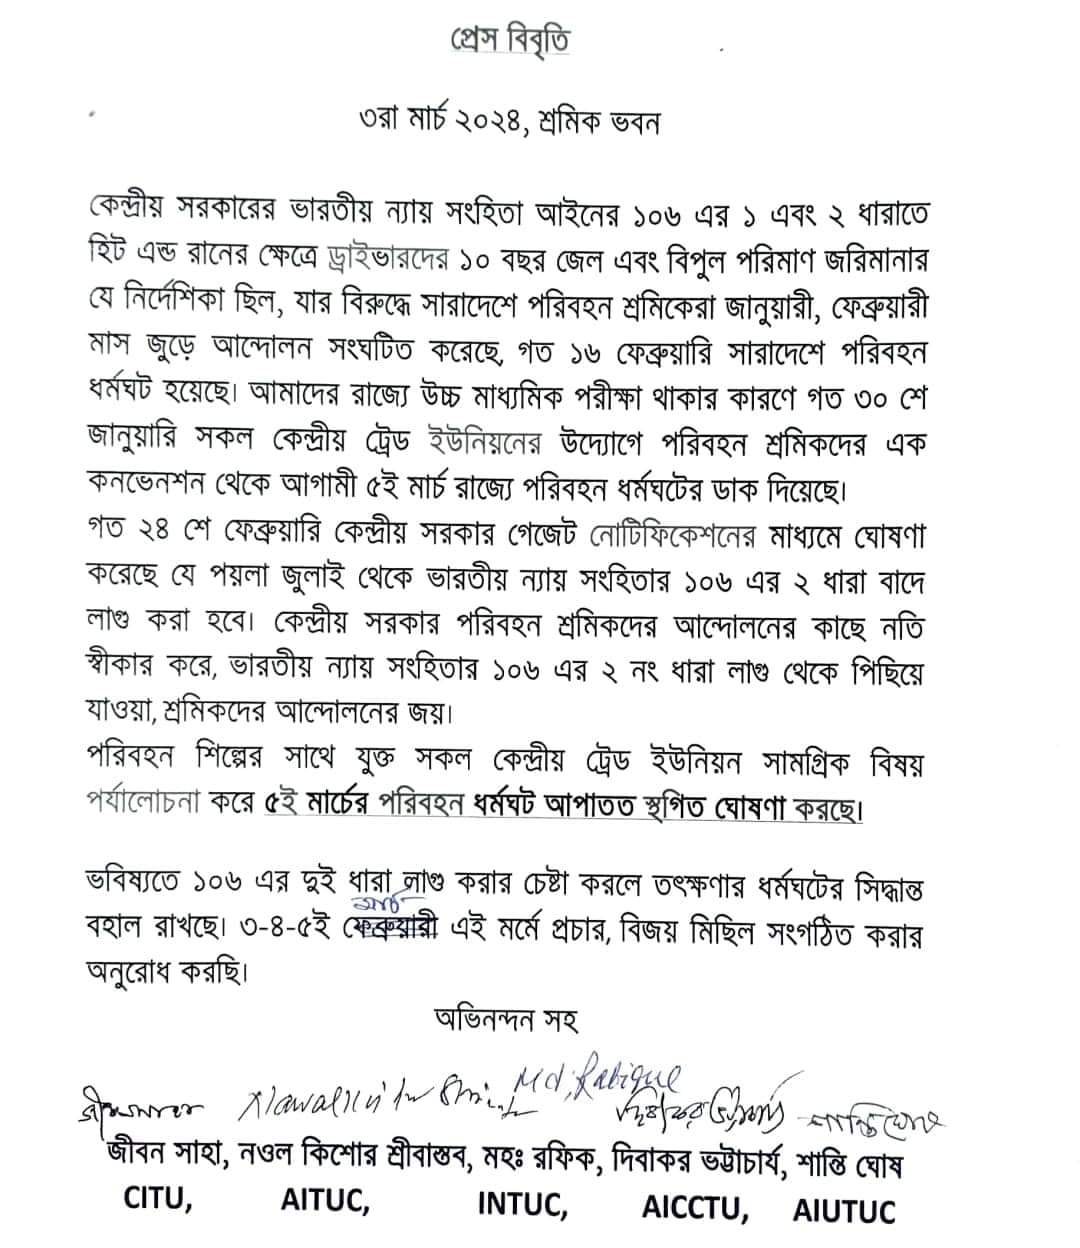 প্রেস বিবৃতি
৩রা মার্চ ২০২৪, শ্রমিক ভবন
কেন্দ্রীয় সরকারের ভারতীয় ন্যায় সংহিতা আইনের ১০৬ এর ১ এবং ২ ধারাতে
হিট এন্ড রানের ক্ষেত্রে ড্রাইভারদের ১০ বছর জেল এবং বিপুল পরিমাণ জরিমানার
যে নির্দেশিকা ছিল, যার বিরুদ্ধে সারাদেশে পরিবহন শ্রমিকেরা জানুয়ারী, ফেব্রুয়ারী
মাস জুড়ে আন্দোলন সংঘটিত করেছে, গত ১৬ ফেব্রুয়ারি সারাদেশে পরিবহন
ধর্মঘট হয়েছে। আমাদের রাজ্যে উচ্চ মাধ্যমিক পরীক্ষা থাকার কারণে গত ৩০ শে
জানুয়ারি সকল কেন্দ্রীয় ট্রেড ইউনিয়নের উদ্যোগে পরিবহন শ্রমিকদের এক
কনভেনশন থেকে আগামী ৫ই মার্চ রাজ্যে পরিবহন ধর্মঘটের ডাক দিয়েছে।
গত ২৪ শে ফেব্রুয়ারি কেন্দ্রীয় সরকার গেজেট নোটিফিকেশনের মাধ্যমে ঘোষণা
করেছে যে পয়লা জুলাই থেকে ভারতীয় ন্যায় সংহিতার ১০৬ এর ২ ধারা বাদে
লাগু করা হবে। কেন্দ্রীয় সরকার পরিবহন শ্রমিকদের আন্দোলনের কাছে নতি
স্বীকার করে, ভারতীয় ন্যায় সংহিতার ১০৬ এর ২ নং ধারা লাগু থেকে পিছিয়ে
যাওয়া, শ্রমিকদের আন্দোলনের জয়।
পরিবহন শিল্পের সাথে যুক্ত সকল কেন্দ্রীয় ট্রেড ইউনিয়ন সামগ্রিক বিষয়
পর্যালোচনা করে ৫ই মার্চের পরিবহন ধর্মঘট আপাতত স্থগিত ঘোষণা করছে।
ভবিষ্যতে ১০৬ এর দুই ধারা লাগু করার চেষ্টা করলে তৎক্ষণার ধর্মঘটের সিদ্ধান্ত
মার্চ
বহাল রাখছে। ৩-৪-৫ই ফেব্রুয়ারী এই মর্মে প্রচার, বিজয় মিছিল সংগঠিত করার
অনুরোধ করছি।
অভিনন্দন সহ
Md, Rabique
শান্তি ঘোষ
জীবন সাহা, নওল কিশোর শ্রীবাস্তব, মহঃ রফিক, দিবাকর ভট্টাচার্য, শান্তি ঘোষ
CITU, AITUC, INTUC, AICCTU, AIUTUC